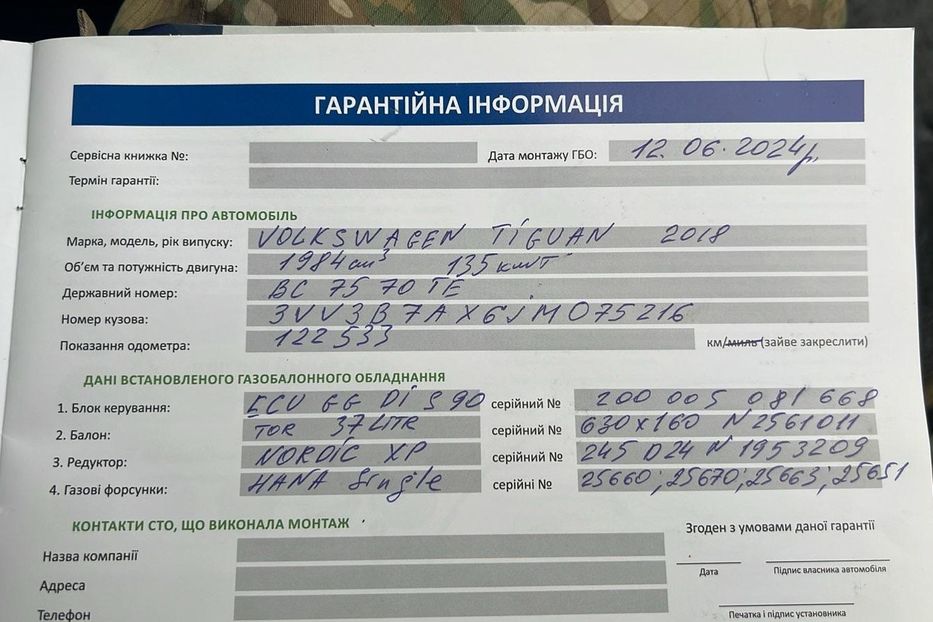 ГАРАНТІЙНА ІНФОРМАЦІЯ
Сервісна книжка №: Дата монтажу ГБО: 12.06.2024р.
Термін гарантії:
ІНФОРМАЦІЯ ПРО АВТОМОБІЛЬ
Марка, модель, рік випуску: VOLKSWAGEN TIGUAN 2018
Об'єм та потужність двигуна: 1984 см³ 135 кмВТ
Державний номер: ВС 75 70 ТЕ
Номер кузова: 3VV3B7AX6JM075216
Показання одометра: 122 533 км/миль (зайве закреслити)
ДАНІ ВСТАНОВЛЕНОГО ГАЗОБАЛОННОГО ОБЛАДНАННЯ
1. Блок керування: ECU GG Di S 90 серійний № 200 005 081 668
2. Балон: TOR 37 LITR серійний № 630x160 N 2561011
3. Редуктор: NORDIC XP серійний № 245 024 N 1953209
4. Газові форсунки: HANA Single серійні № 25660; 25670; 25663; 25651
КОНТАКТИ СТО, ЩО ВИКОНАЛА МОНТАЖ
Згоден з умовами даної гарантії
Назва компанії
Адреса
Дата Підпис власника автомобіля
Телефон
Печатка і підпис установника